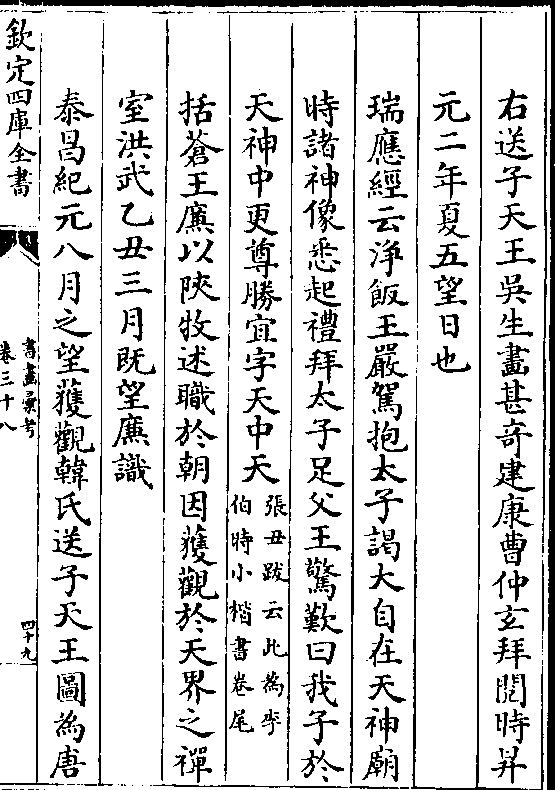 右送子天王吳生畫甚奇建康曹仲玄拜閱時昇
元二年夏五望日也
瑞應經云淨飯王嚴駕抱太子謁大自在天神廟
時諸神像悉起禮拜太子足父王驚歎曰我子於
天神中更尊勝宜字天中天
張丑跋云此為李
伯時小楷書卷尾
括蒼王廉以陜牧述職於朝因獲觀於天界之禪
室洪武乙丑三月既望廉識
泰昌紀元八月之望獲觀韓氏送子天王圖為唐
欽定四庫全書
書畫彙考
卷三十八
四十九